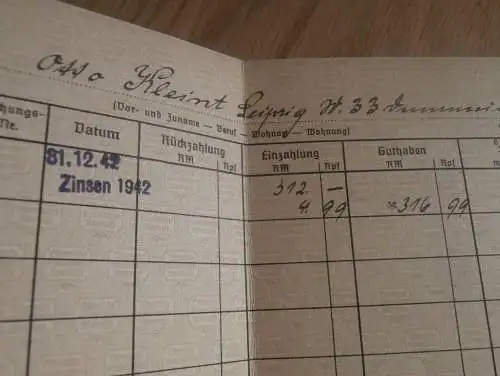 Otto Kleint Leipzig W. 33
(Vor- und Zuname — Beruf — Wohnung — Wohnung)
Datum Rückzahlung Einzahlung Guthaben
Nr. RM Rpf RM Rpf RM Rpf
31.12.42 312. —
Zinsen 1942 4. 99 316 99